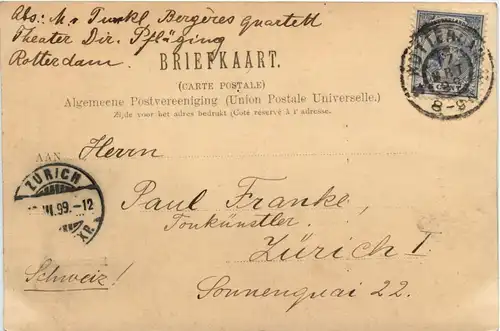 Abs: M. Dunkl Bergères quartett
Theater Dir. Pflüging
Rotterdam.
BRIEFKAART.
(CARTE POSTALE)
Algemeene Postvereeniging (Union Postale Universelle.)
Zijde voor het adres bedrukt (Coté reservé à l'adresse.
AAN Herrn
Paul Franke,
Tonkünstler.
Zürich I
Schweiz!
Sonnenquai 22.
ZÜRICH
VI.99.-12
ROTTERDAM
8-9